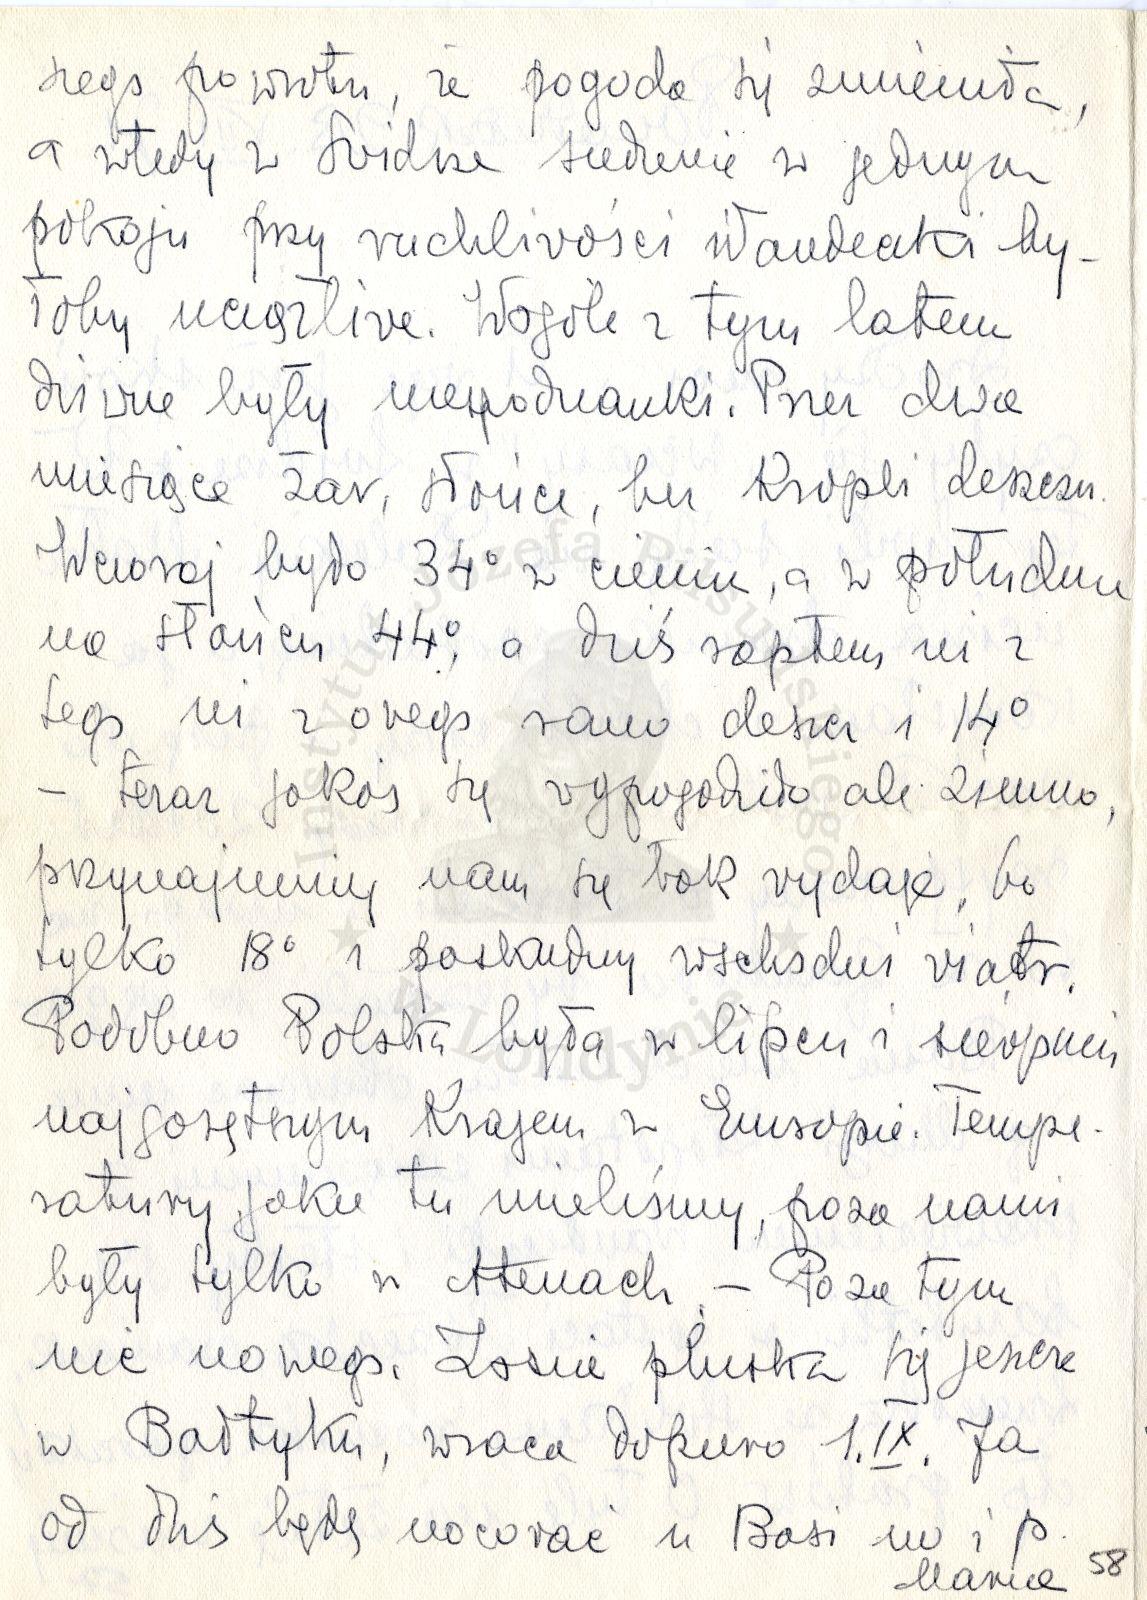 szego powrotu, że pogoda się zmieniła,
a wtedy w Świdrze siedzenie w jednym
pokoju przy ruchliwości Wandeczki by-
łoby uciążliwe. Wogóle z tym latem
dziwne były niespodzianki. Przez dwa
miesiące żar, słońce, bez kropli deszczu.
Wczoraj było 34° w cieniu, a w południe
na słońcu 44°, a dziś raptem ni z
tego ni z owego rano deszcz i 14°
– teraz jakoś się wypogodziło ale zimno,
przynajmniej nam się tak wydaje, bo
tylko 18° i paskudny wschodni wiatr.
Podobno Polska była w lipcu i sierpniu
najgorętszym krajem w Europie. Tempe-
ratury, jakie tu mieliśmy, poza nami
były tylko w Atenach. – Poza tym
nic nowego. Zosia pluska się jeszcze
w Bałtyku, wraca dopiero 1.IX. Ja
od dziś będę nocować u Basi no i p.
Maria
58
Instytut Józefa Piłsudskiego
w Londynie